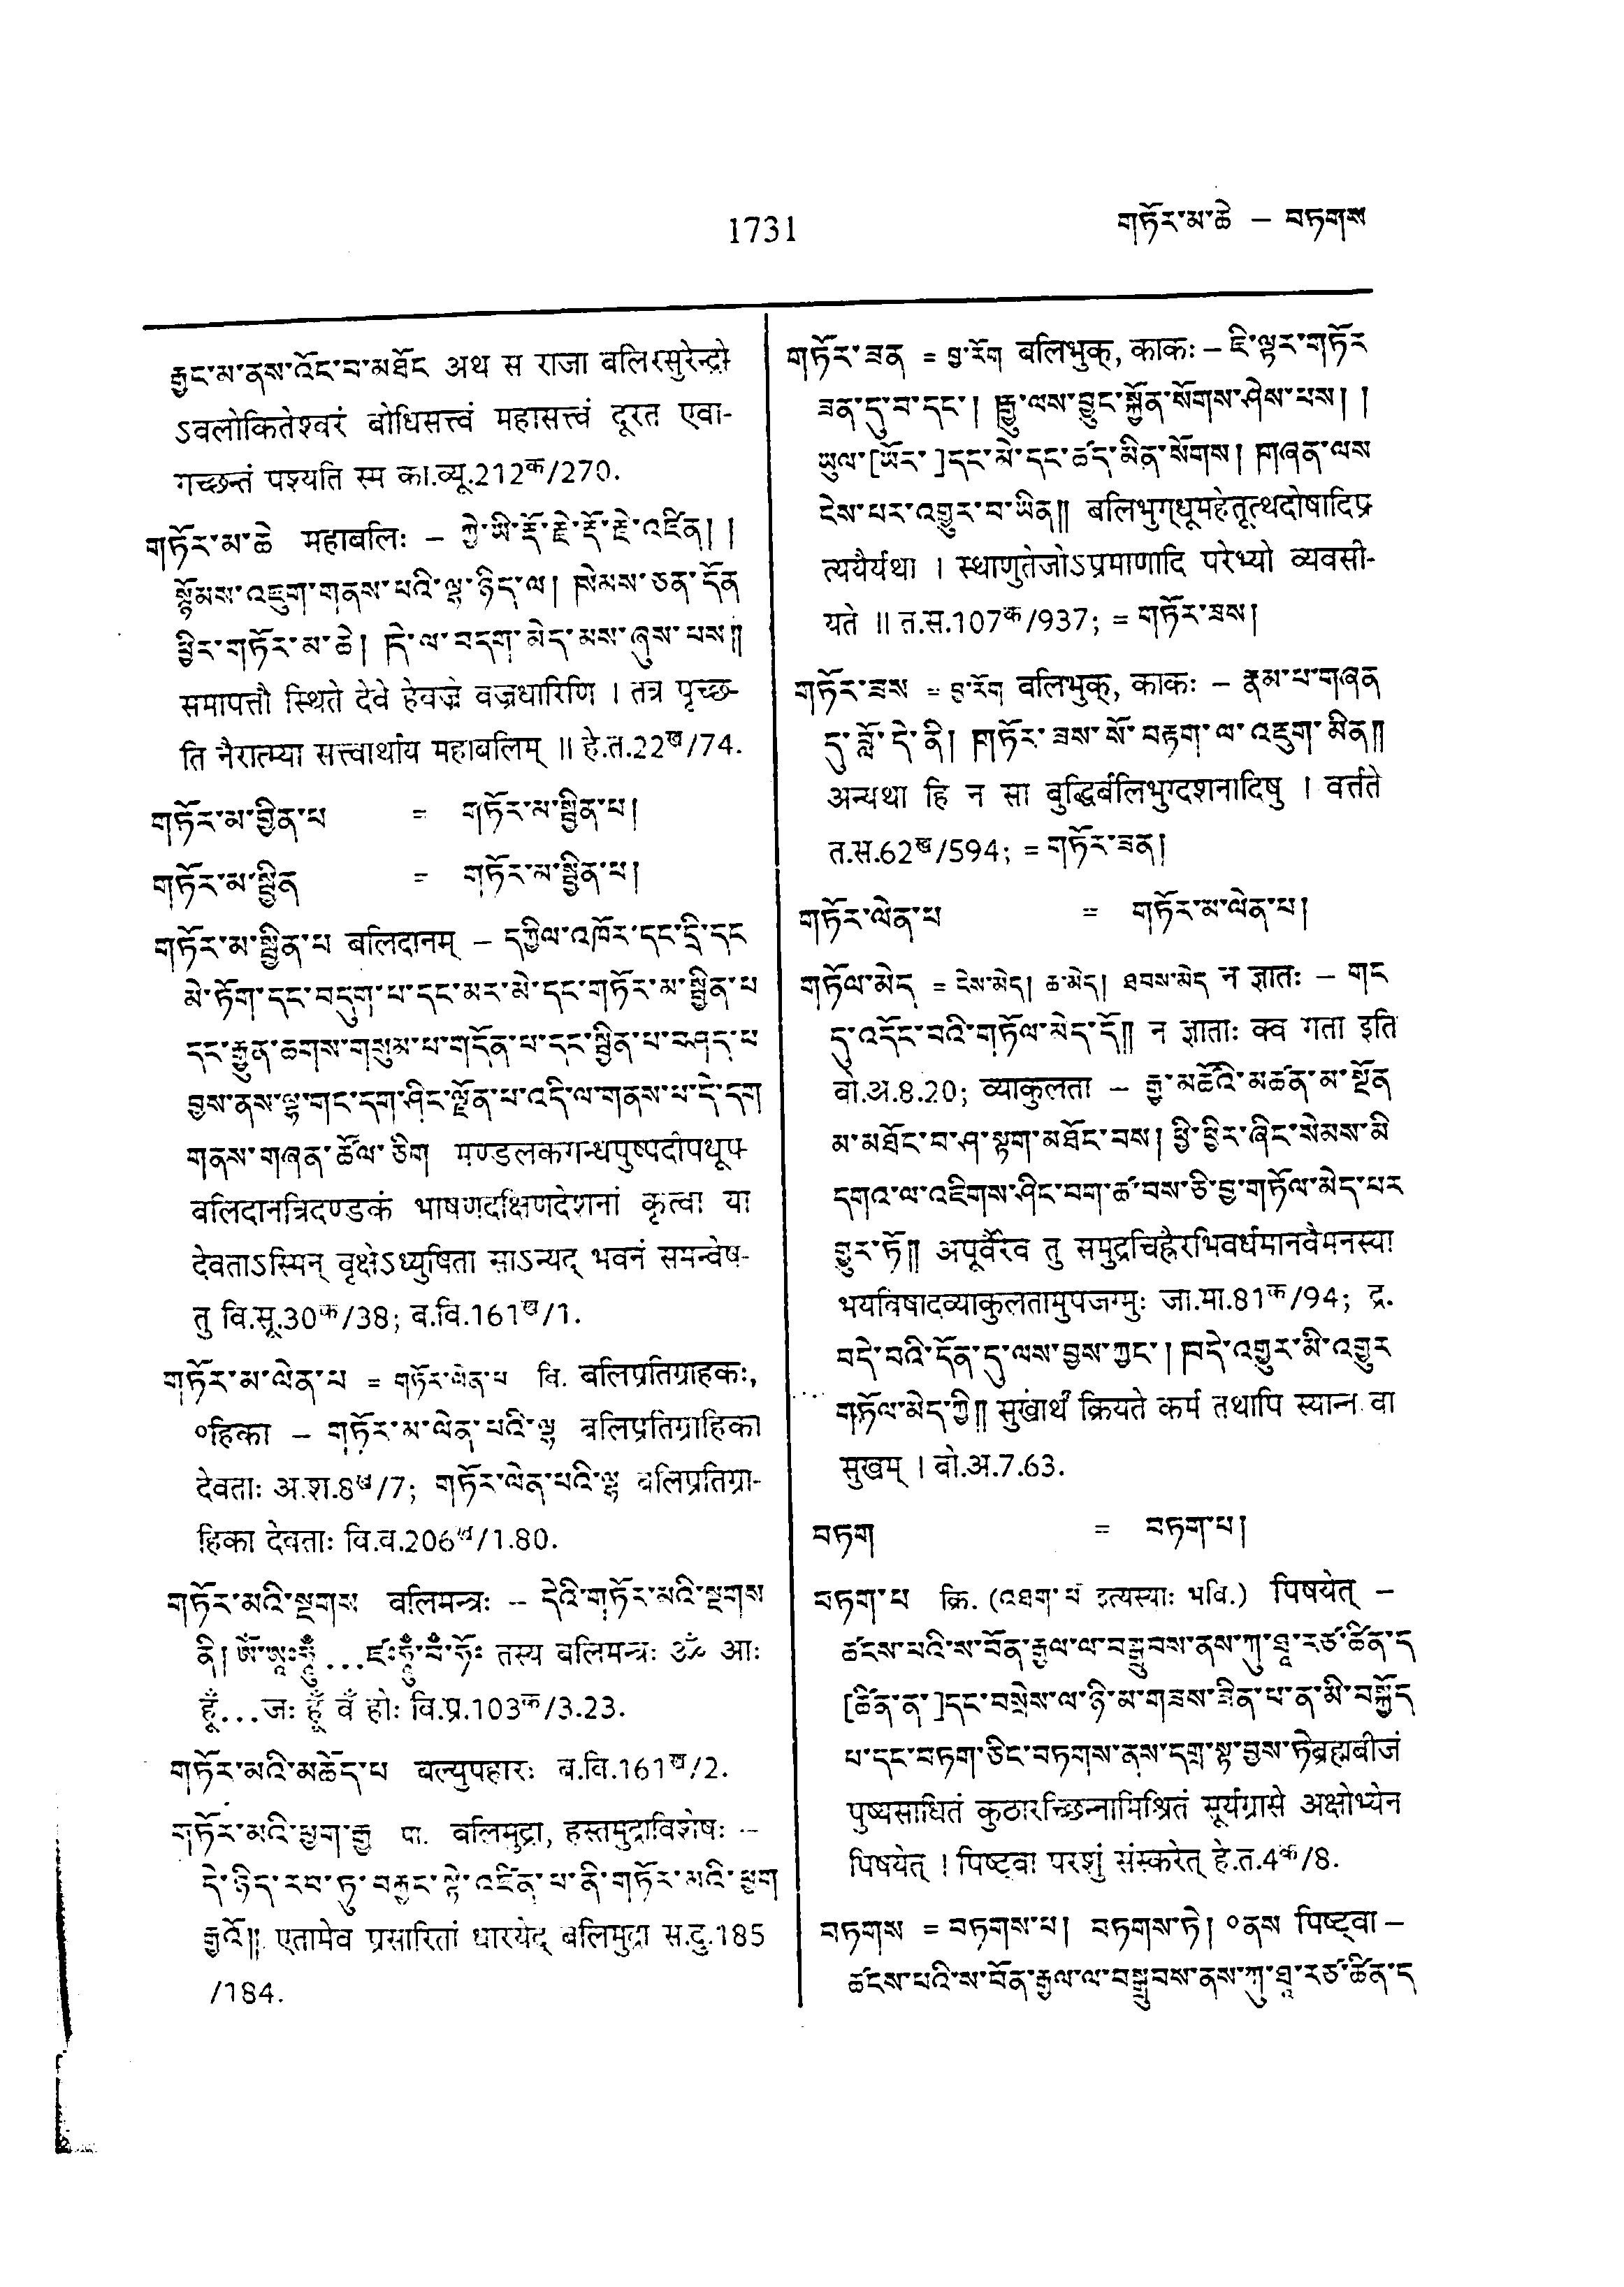 1731
གཏོར་མ་ཆེ – བཏགས
རྒྱང་མ་ནས་འོང་བ་མཐོང अथ स राजा बलिरसुरेन्द्रो
ऽवलोकितेश्वरं बोधिसत्त्वं महासत्त्वं दूरत एवा-
गच्छन्तं पश्यति स्म का.व्यू.212क/270.
གཏོར་མ་ཆེ महाबलिः – ཀྱེ་ཡི་རྡོ་རྗེ་རྡོ་རྗེ་འཛིན། །
སྙོམས་འཇུག་གནས་པའི་ལྷ་ཉིད་ལ། །སེམས་ཅན་དོན
ཕྱིར་གཏོར་མ་ཆེ། །དེ་ལ་བདག་མེད་མས་ཞུས་པས༎
समापत्तौ स्थिते देवे हेवज्रे वज्रधारिणि । तत्र पृच्छ-
ति नैरात्म्या सत्त्वार्थाय महाबलिम् ॥ हे.त.22ख/74.
གཏོར་མ་བྱིན་པ = གཏོར་མ་སྦྱིན་པ།
གཏོར་མ་སྦྱིན = གཏོར་མ་སྦྱིན་པ།
གཏོར་མ་སྦྱིན་པ बलिदानम् – དཀྱིལ་འཁོར་དང་དྲི་དང
མེ་ཏོག་དང་བདུག་པ་དང་མར་མེ་དང་གཏོར་མ་སྦྱིན་པ
དང་རྒྱུན་ཆགས་གསུམ་པ་གདོན་པ་དང་སྦྱིན་པ་བཤད་པ
བྱས་ནས་ལྷ་གང་དག་ཤིང་ལྗོན་པ་འདི་ལ་གནས་པ་དེ་དག
གནས་གཞན་ཚོལ་ཅིག मण्डलकगन्धपुष्पदीपधूप-
बलिदानत्रिदण्डकं भाषणदक्षिणदेशनां कृत्वा या
देवताऽस्मिन् वृक्षेऽध्युषिता साऽन्यद् भवनं समन्वेष-
तु वि.सू.30क/38; ब.वि.161ख/1.
གཏོར་མ་ལེན་པ = གཏོར་ལེན་པ वि. बलिप्रतिग्राहकः,
०हिका – གཏོར་མ་ལེན་པའི་ལྷ बलिप्रतिग्राहिका
देवताः अ.श.8ख/7; གཏོར་ལེན་པའི་ལྷ बलिप्रतिग्रा-
हिका देवताः वि.व.206ख/1.80.
གཏོར་མའི་སྔགས बलिमन्त्रः – དེའི་གཏོར་མའི་སྔགས
ནི། ཨོཾ་ཨཱཿཧཱུྃ...ཛཿཧཱུྃ་བྃ་ཧོཿ तस्य बलिमन्त्रः ॐ आः
हूँ...जः हूँ वँ होः वि.प्र.103क/3.23.
གཏོར་མའི་མཆོད་པ बल्युपहारः ब.वि.161ख/2.
གཏོར་མའི་ཕྱག་རྒྱ पा. बलिमुद्रा, हस्तमुद्राविशेषः –
དེ་ཉིད་རབ་ཏུ་བརྐྱང་སྟེ་འཛིན་པ་ནི་གཏོར་མའི་ཕྱག
རྒྱའོ༎ एतामेव प्रसारितां धारयेद् बलिमुद्रा स.दु.185
/184.
གཏོར་ཟན = བྱ་རོག बलिभुक्, काकः – ཇི་ལྟར་གཏོར
ཟན་དུ་བ་དང་། །རྒྱུ་ལས་བྱུང་སྐྱོན་སོགས་ཤེས་པས། །
ཡུལ་[ཡོར་]དང་མེ་དང་ཚད་མིན་སོགས། །གཞན་ལས
ངེས་པར་འགྱུར་བ་ཡིན༎ बलिभुग्धूमहेतूत्थदोषादिप्र
त्ययैर्यथा । स्थाणुतेजोऽप्रमाणादि परेभ्यो व्यवसी-
यते ॥ त.स.107क/937; = གཏོར་ཟས།
གཏོར་ཟས = བྱ་རོག बलिभुक्, काकः – རྣམ་པ་གཞན
དུ་བློ་དེ་ནི། །གཏོར་ཟས་སོ་བརྟག་ལ་འཇུག་མིན༎
अन्यथा हि न सा बुद्धिर्बलिभुग्दशनादिषु । वर्त्तते
त.स.62ख/594; = གཏོར་ཟན།
གཏོར་ལེན་པ = གཏོར་མ་ལེན་པ།
གཏོལ་མེད = ངེས་མེད། ཆ་མེད། ཐབས་མེད न ज्ञातः – གང
དུ་འདོང་བའི་གཏོལ་མེད་དོ༎ न ज्ञाताः क्व गता इति
बो.अ.8.20; व्याकुलता – རྒྱ་མཚོའི་མཚན་མ་སྔོན
མ་མཐོང་བ་ཤ་སྟག་མཐོང་བས། ཕྱི་ཕྱིར་ཞིང་སེམས་མི
དགའ་ལ་འཇིགས་ཤིང་བག་ཚ་བས་ཅི་བྱ་གཏོལ་མེད་པར
གྱུར་ཏོ༎ अपूर्वैरेव तु समुद्रचिह्नैरभिवर्धमानवैमनस्या
भयविषादव्याकुलतामुपजग्मुः जा.मा.81क/94; द्र.
བདེ་བའི་དོན་དུ་ལས་བྱས་ཀྱང་། །བདེ་འགྱུར་མི་འགྱུར
གཏོལ་མེད་ཀྱི༎ सुखार्थं क्रियते कर्म तथापि स्यान्न वा
सुखम् । बो.अ.7.63.
བཏག = བཏག་པ།
བཏག་པ क्रि. (འཐག་པ इत्यस्याः भवि.) पिषयेत् –
ཚངས་པའི་ས་བོན་རྒྱལ་ལ་བསྒྲུབས་ནས་ཀུ་ཐཱ་རཙྪིན་ད
[ཚིན་ན་]དང་བསྲེས་ལ་ཉི་མ་གཟས་ཟིན་པ་ན་མི་བསྐྱོད
པ་དང་བཏག་ཅིང་བཏགས་ནས་དགྲ་སྟ་བྱས་ཏེब्रह्मबीजं
पुष्यसाधितं कुठारच्छिन्नामिश्रितं सूर्यग्रासे अक्षोभ्येन
पिषयेत् । पिष्ट्वा परशुं संस्करेत् हे.त.4क/8.
བཏགས = བཏགས་པ། བཏགས་ཏེ། ०ནས पिष्ट्वा –
ཚངས་པའི་ས་བོན་རྒྱལ་ལ་བསྒྲུབས་ནས་ཀུ་ཐཱ་རཙྪིན་ད